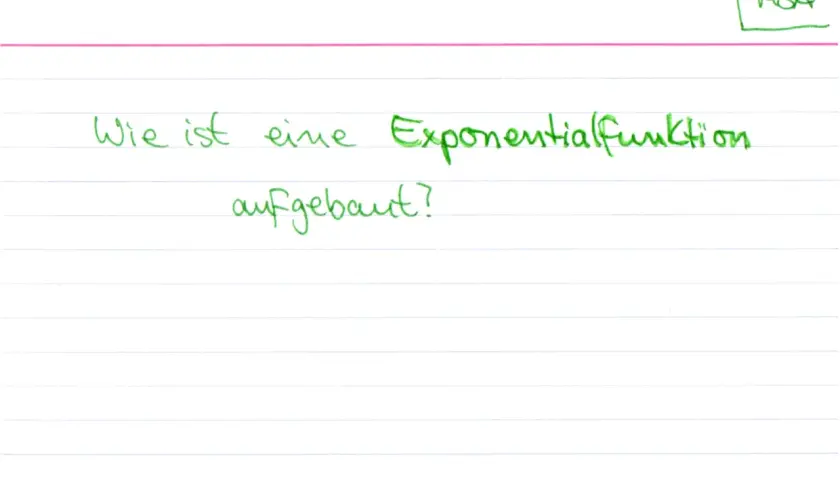 Wie ist eine Exponentialfunktion
aufgebaut?